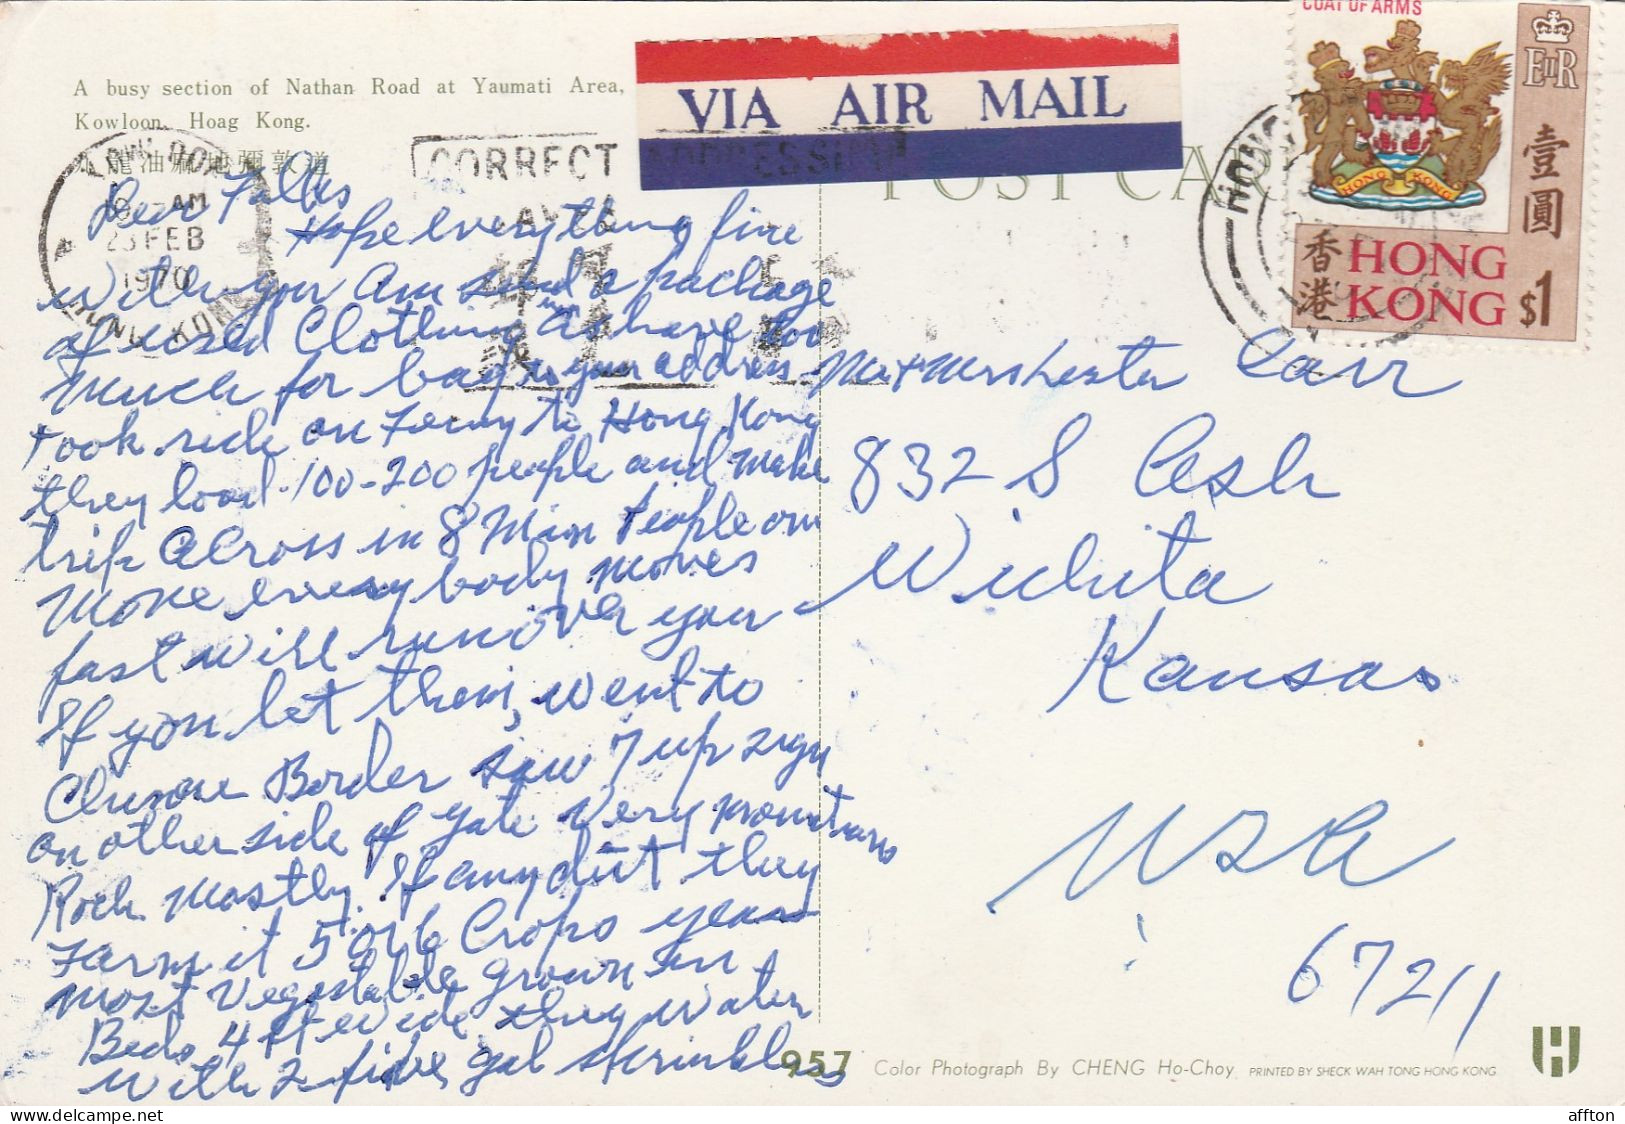 A busy section of Nathan Road at Yaumati Area,
Kowloon, Hoag Kong.
九龍油麻地彌敦道
VIA AIR MAIL
COAT OF ARMS
EIIR
壹圓
香港
HONG KONG
HONG
KONG $1
POST CAR
CORRECT ADDRESSING
AM
FEB
1970
HONG KONG
HONG
Dear Folks
Hope everything fine
with you am send a package
of used clothing as have too
much for bag to your address
took ride on Ferry to Hong Kong
they load 100-200 people and make
trip across in 8 min people on
move every body moves
fast will run over you
If you let them, went to
Chinese Border saw 7 up sign
on other side of gate very mountans
Rock mostly. If any dirt they
Farm it 5 or 6 Crops year
most Vegetable grown in
Beds 4 ft wide they water
with 2 five gal sprinklers
Mr + Mrs Lester Carr
832 S
Wichita
Kansas
USA
67211
957 Color Photograph By CHENG Ho-Choy. PRINTED BY SHECK WAH TONG HONG KONG.
affton